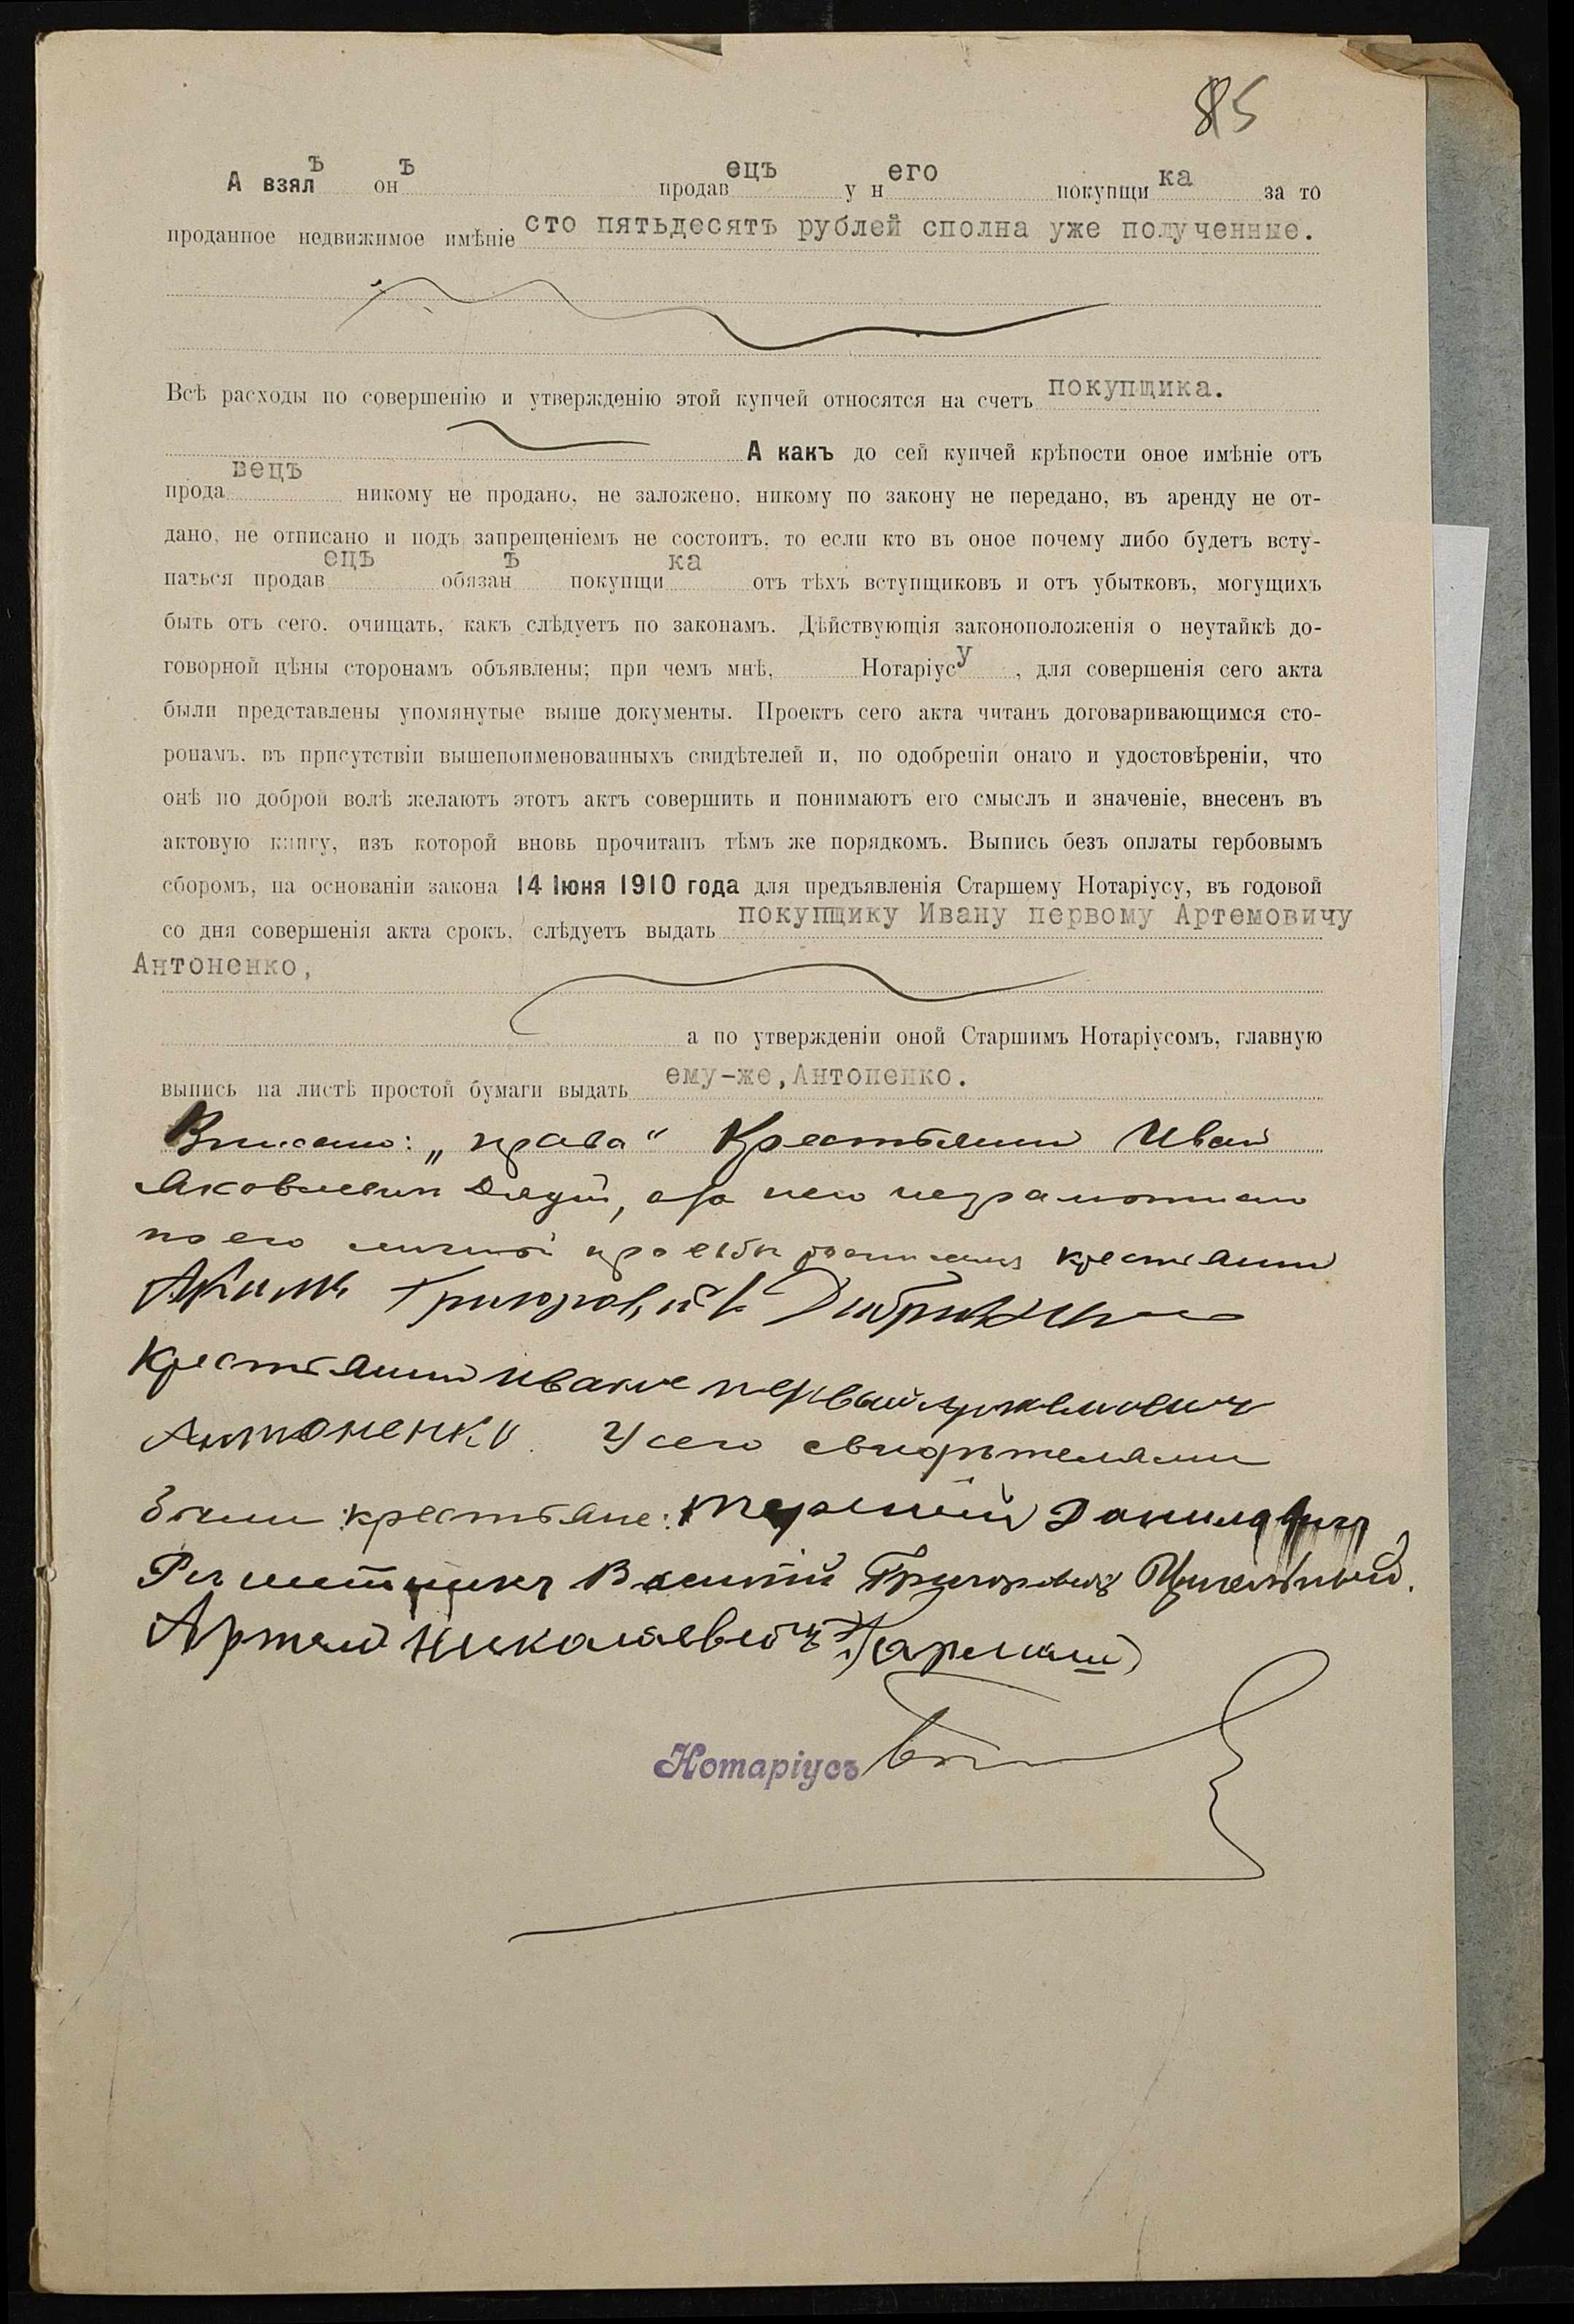 85
А взялъ онъ продавецъ у него покупщика за то
проданное недвижимое имѣніе сто пятьдесятъ рублей сполна уже полученные.
Всѣ расходы по совершенію и утвержденію этой купчей относятся на счетъ покупщика.
А какъ до сей купчей крѣпости оное имѣніе отъ
продавецъ никому не продано, не заложено, никому по закону не передано, въ аренду не от-
дано, не отписано и подъ запрещеніемъ не состоитъ, то если кто въ оное почему либо будетъ всту-
паться продавецъ обязанъ покупщика отъ тѣхъ вступщиковъ и отъ убытковъ, могущихъ
быть отъ сего, очищать, какъ слѣдуетъ по законамъ. Дѣйствующія законоположенія о неутайкѣ до-
говорной цѣны сторонамъ объявлены; при чемъ мнѣ, Нотаріусу, для совершенія сего акта
были представлены упомянутые выше документы. Проектъ сего акта читанъ договаривающимся сто-
ронамъ, въ присутствіи вышепоименованныхъ свидѣтелей и, по одобреніи онаго и удостовѣреніи, что
онѣ по доброй волѣ желаютъ этотъ актъ совершить и понимаютъ его смыслъ и значеніе, внесенъ въ
актовую книгу, изъ которой вновь прочитанъ тѣмъ же порядкомъ. Выпись безъ оплаты гербовымъ
сборомъ, на основаніи закона 14 Іюня 1910 года для предъявленія Старшему Нотаріусу, въ годовой
со дня совершенія акта срокъ, слѣдуетъ выдать покупщику Ивану первому Артемовичу
Антоненко,
а по утвержденіи оной Старшимъ Нотаріусомъ, главную
выпись на листѣ простой бумаги выдать ему-же, Антоненко.
Вписано: „права“ Крестьянин Иван
Яковлевич, а за него неграмотнаго
по его личной просьбѣ росписался крестьянин
Акимъ Григоровичъ
Крестьянин Иван первый Артемович
Антоненко. У сего свидѣтелями
были крестьяне: Данилович
Григоровичъ
Артем Николаевичъ
Нотаріусъ